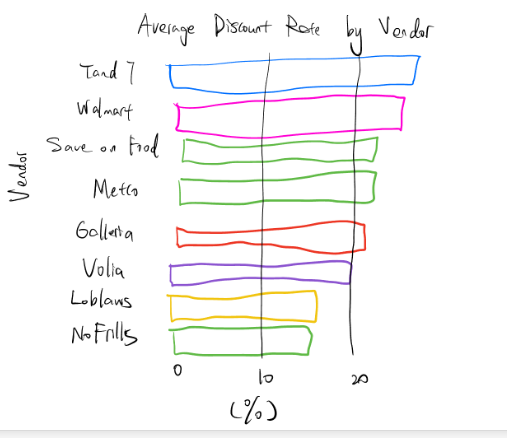 Average Discount Rate by Vendor
Vendor
T and 7
Walmart
Save on Food
Metro
Galleria
Volia
Loblaws
No Frills
0 10 20
(%)